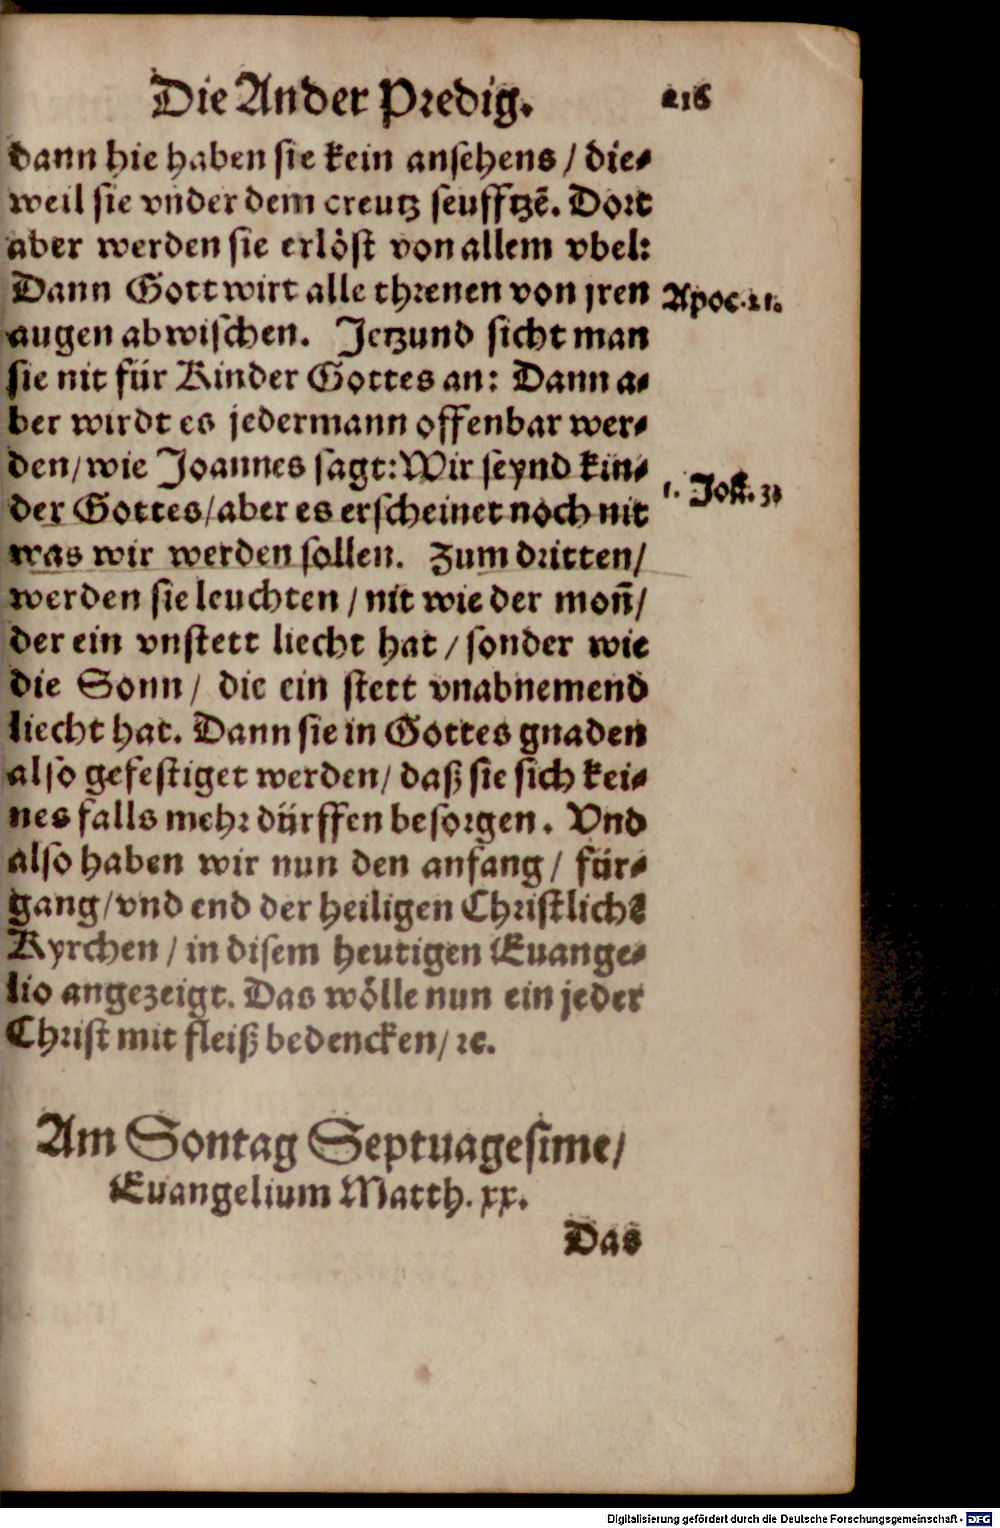 Die Ander Predig. 216
dann hie haben sie kein ansehens / die⸗
weil sie vnder dem creutz seufftzẽ. Dort
aber werden sie erlöst von allem vbel:
Dann Gott wirt alle threnen von jren
Apoc. 21.
augen abwischen. Jetzund sicht man
sie nit für Kinder Gottes an: Dann a⸗
ber wirdt es jedermann offenbar wer⸗
den / wie Joannes sagt: Wir seynd kin⸗
1. Joh. 3.
der Gottes / aber es erscheinet noch nit
was wir werden sollen. Zum dritten /
werden sie leuchten / nit wie der moñ /
der ein vnstett liecht hat / sonder wie
die Sonn / die ein stett vnabnemend
liecht hat. Dann sie in Gottes gnaden
also gefestiget werden / daß sie sich kei⸗
nes falls mehr dürffen besorgen. Vnd
also haben wir nun den anfang / für⸗
gang / vnd end der heiligen Christlichẽ
Kyrchen / in disem heutigen Euange⸗
lio angezeigt. Das wölle nun ein jeder
Christ mit fleiß bedencken / ꝛc.
Am Sontag Septuagesime /
Euangelium Matth. xx.
Das
Digitalisierung gefördert durch die Deutsche Forschungsgemeinschaft - DFG